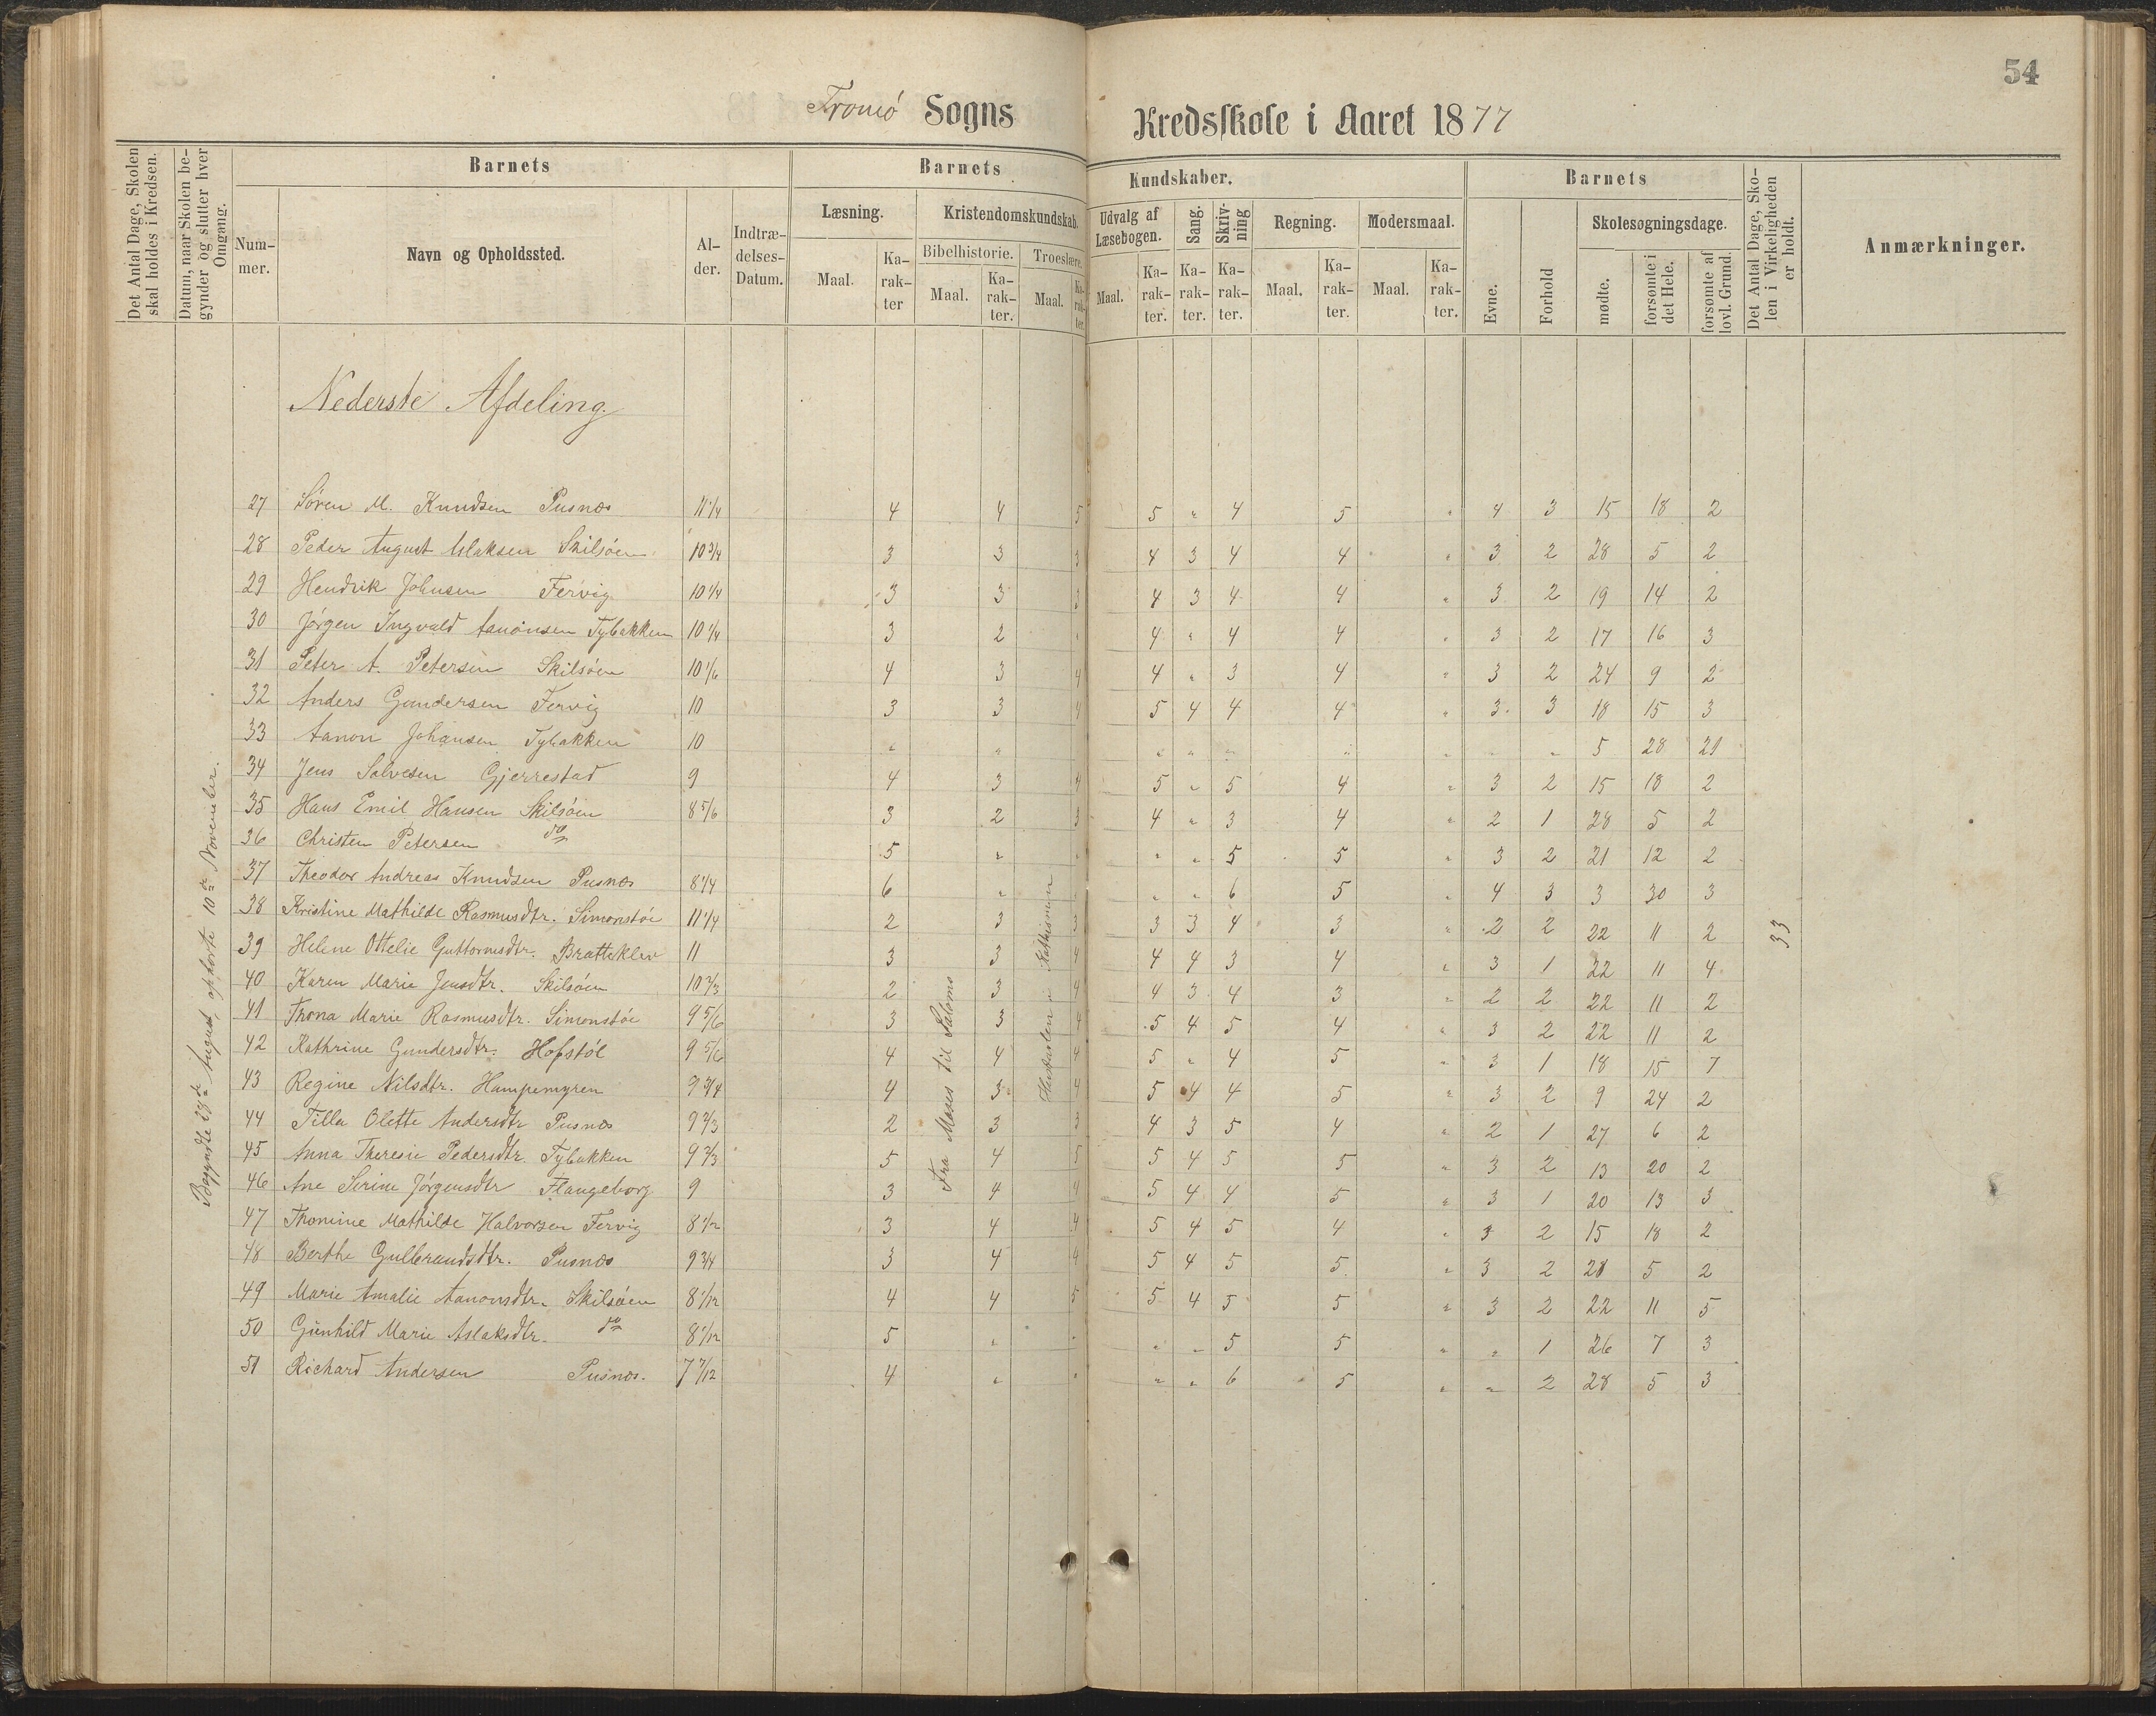 54
Tromö Sogns Kredsskole i Aaret 1877
Det Antal Dage, Skolen skal holdes i Kredsen.
Datum, naar Skolen begynder og slutter hver Omgang.
Barnets
Nummer.
Navn og Opholdssted.
Alder.
Indtrædelses-Datum.
Barnets Kundskaber.
Læsning.
Maal. Karakter
Kristendomskundskab.
Bibelhistorie.
Maal. Karakter.
Troeslære.
Maal. Karakter.
Udvalg af Læsebogen.
Maal. Karakter.
Sang.
Karakter.
Skrivning
Karakter.
Regning.
Maal. Karakter.
Modersmaal.
Maal. Karakter.
Barnets
Evne.
Forhold
Skolesøgningsdage.
mødte.
forsømte i det Hele.
forsømte af lovl. Grund.
Det Antal Dage, Skolen i Virkeligheden er holdt.
Anmærkninger.
Nederste Afdeling.
27 Sören M. Knudsen Pusnæs 11 1/4 4 4 5 5 " 4 5 " 4 3 15 18 2
28 Peder August Aslaksen Skilsöen 10 3/4 3 3 3 4 3 4 4 " 3 2 28 5 2
29 Hendrik Johnsen Fervig 10 1/4 3 3 3 4 3 4 4 " 3 2 19 14 2
30 Jörgen Ingvald Aanonsen Tybakken 10 1/4 3 2 " 4 " 4 4 " 3 2 17 16 3
31 Peter A. Petersen Skilsöen 10 1/6 4 3 4 4 " 3 4 " 3 2 24 9 2
32 Anders Gundersen Fervig 10 3 3 4 5 4 4 4 " 3 3 18 15 3
33 Aanon Johansen Tybakken 10 " " " " " " " " " 5 28 21
34 Jens Salvesen Gjerrestad 9 4 3 4 5 " 5 4 " 3 2 15 18 2
35 Hans Emil Hansen Skilsöen 8 5/6 3 2 3 4 " 3 4 " 2 1 28 5 2
36 Christen Petersen do 5 " " " " 5 5 " 3 2 21 12 2
37 Theodor Andreas Knudsen Pusnæs 8 1/4 6 " " " " 6 5 " 4 3 3 30 3
38 Kristine Mathilde Rasmusdtr. Simonstöe 11 1/4 2 3 3 3 3 4 3 " 2 2 22 11 2
39 Helene Ottelie Guttormsdtr. Bratteklev 11 3 3 4 4 4 3 4 " 3 1 22 11 4
40 Karen Marie Jensdtr. Skilsöen 10 2/3 2 3 4 4 3 4 3 " 2 2 22 11 2
41 Thona Marie Rasmusdtr. Simonstöe 9 5/6 3 3 4 5 4 5 4 " 3 2 22 11 2
42 Kathrine Gundersdtr. Hofstöl 9 5/6 4 4 4 5 " 4 5 " 3 1 18 15 7
43 Regine Nilsdtr. Hampemyren 9 3/4 4 3 4 5 4 4 5 " 3 2 9 24 2
44 Tilla Olette Andersdtr Pusnæs 9 2/3 2 3 3 4 3 5 4 " 2 1 27 6 2
45 Anna Theresie Pedersdtr. Tybakken 9 2/3 5 4 5 5 4 5 5 " 3 2 13 20 2
46 Ane Serine Jörgensdtr Flangeborg 9 3 4 4 5 4 4 5 " 3 1 20 13 3
47 Thomine Mathilde Halvorsen Fervig 8 1/2 3 4 4 5 4 5 4 " 3 2 15 18 2
48 Berthe Gulbrandsdtr. Pusnæs 9 3/4 3 4 4 5 4 5 5 " 3 2 28 5 2
49 Marie Amalie Aanonsdtr. Skilsöen 8 1/12 4 4 5 5 4 5 5 " 3 2 22 11 5
50 Gunhild Marie Aslaksdtr. do 8 1/12 5 " " " " 5 5 " " 1 26 7 3
51 Richard Andersen Pusnæs. 7 7/12 4 " " " " 6 5 " " 2 28 5 3
Begyndte 24de August, ophörte 10de November.
Fra Moses til Salomo
Hustavlen i Kathismen
33